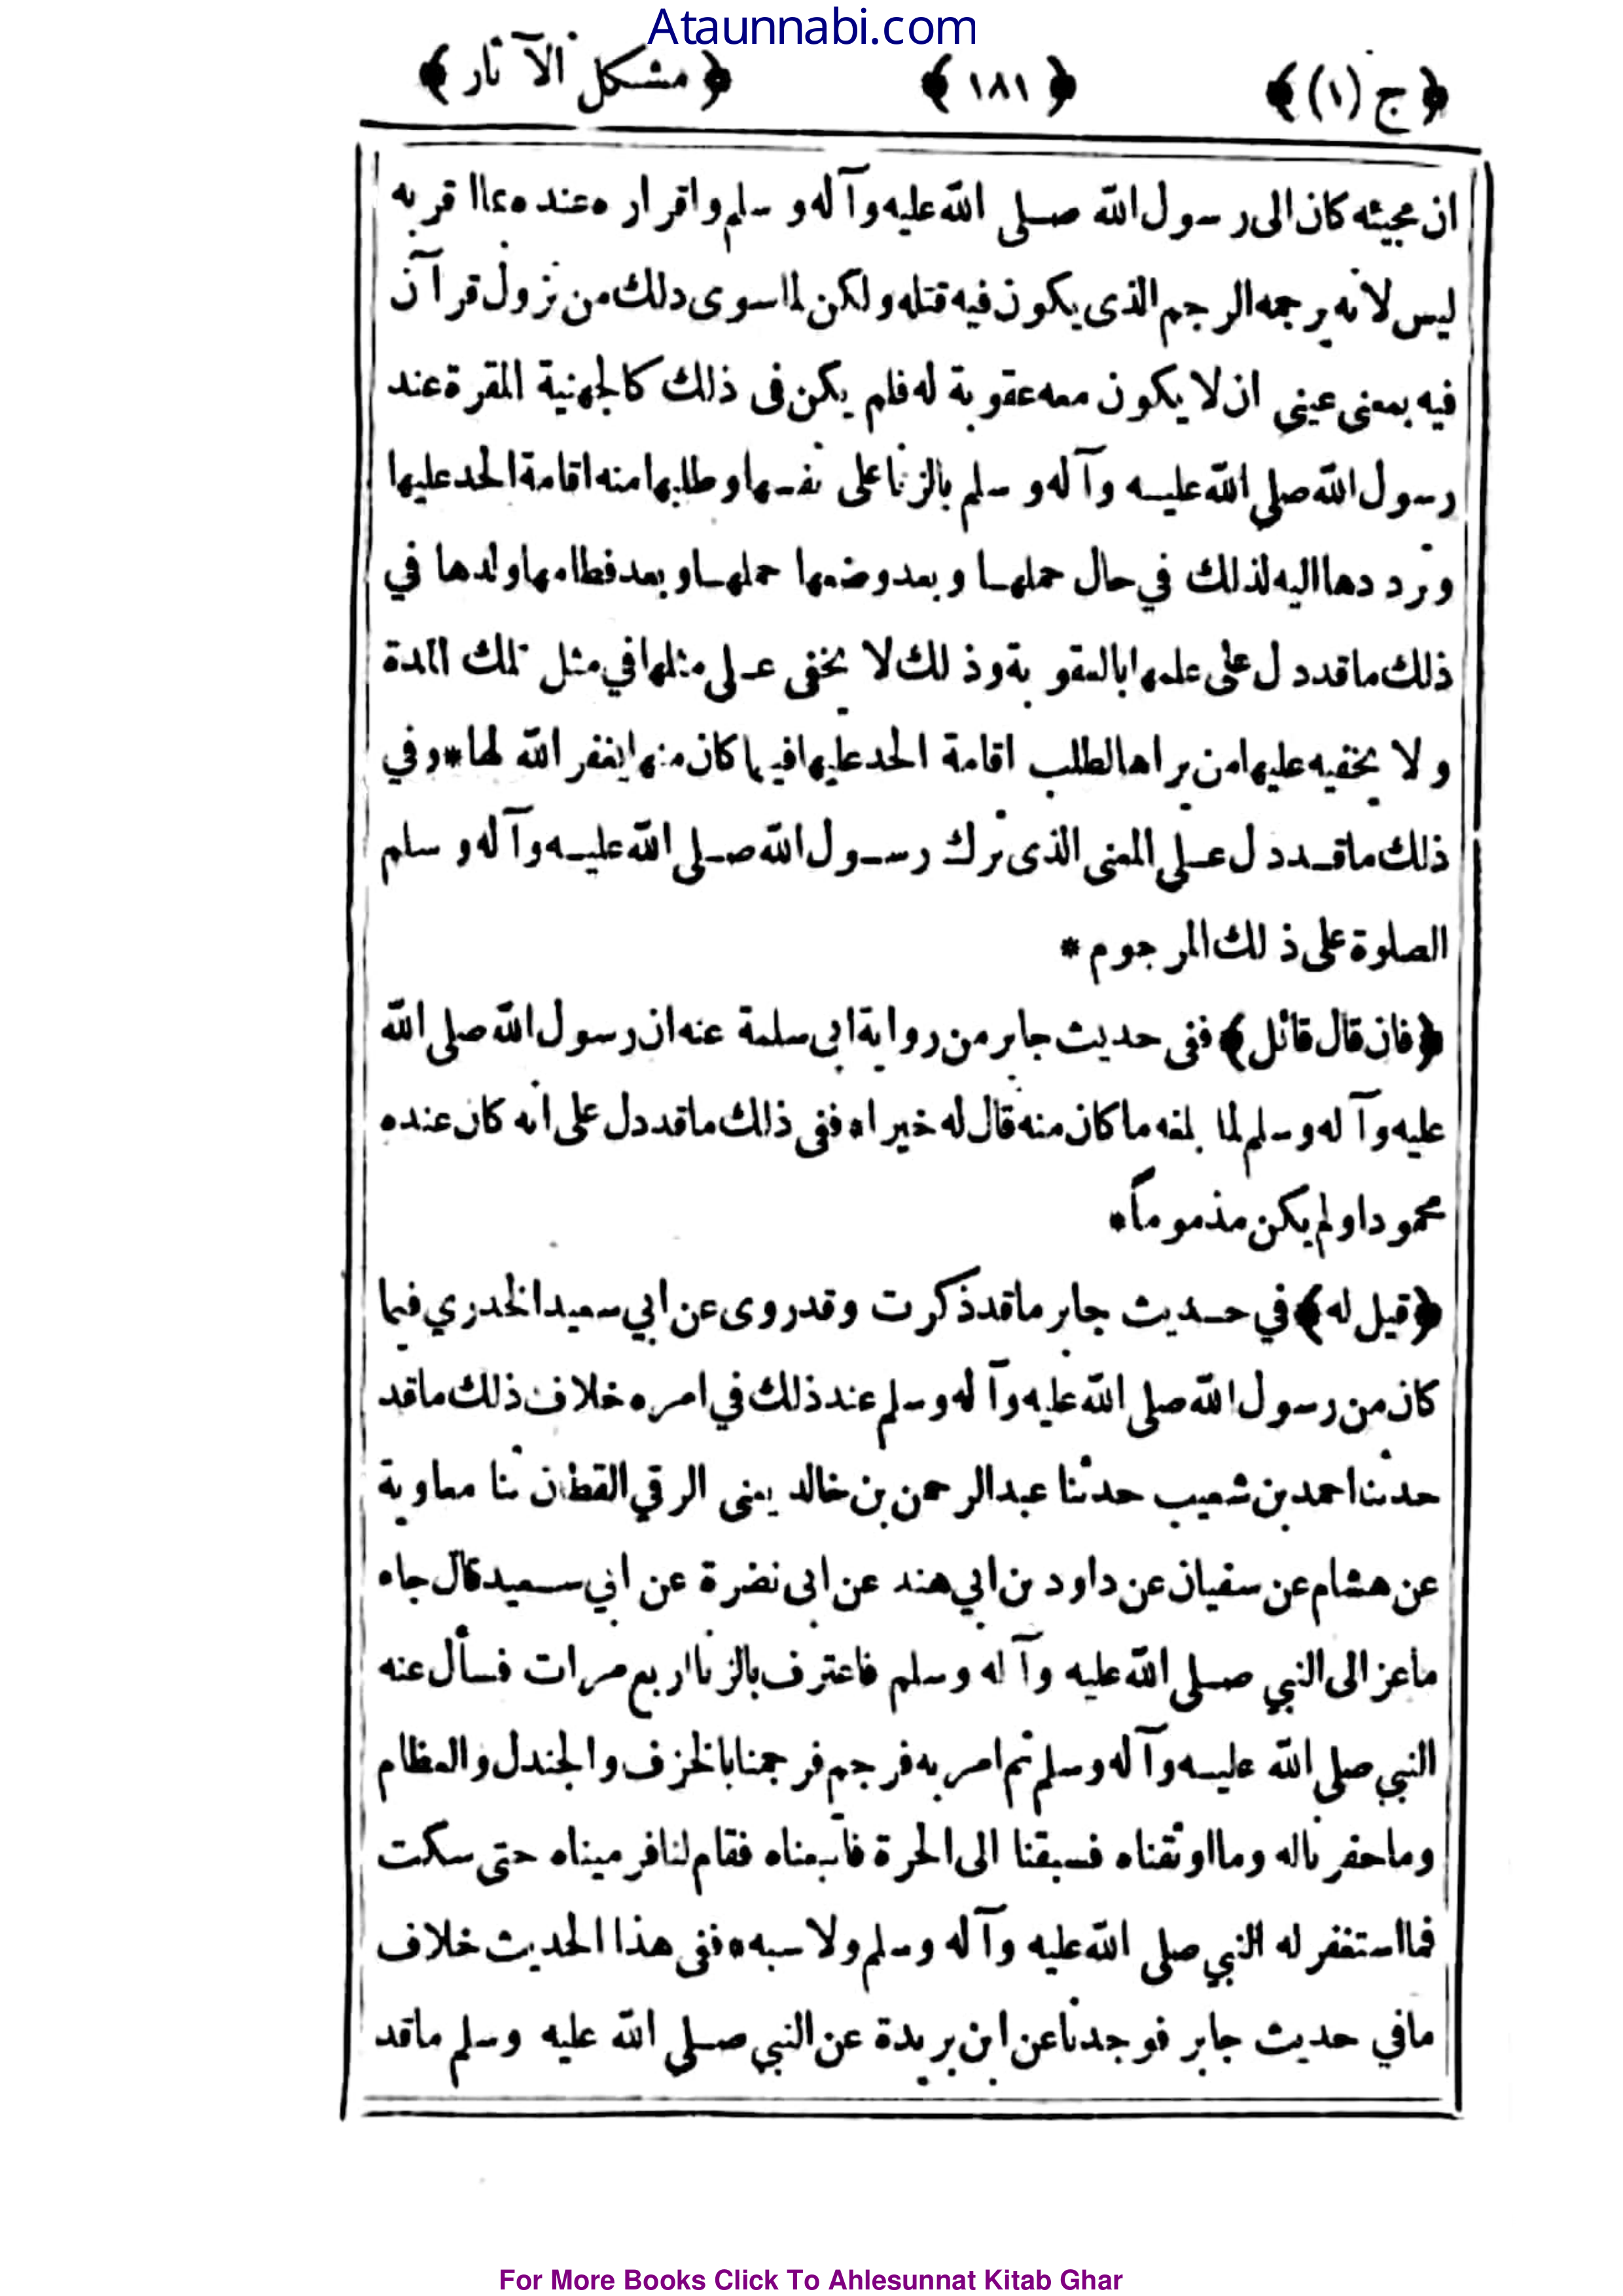 Ataunnabi.com
﴿ ج (١) ﴾ ﴿ ١٨١ ﴾ ﴿ مشكل الآثار ﴾
ان مجيئه كان الى رسول الله صلى الله عليه وآله وسلم واقراره عنده بما اقر به
ليس لانه يرجمه الرجم الذى يكون فيه قتله ولكن لما سوى ذلك من نزول قرآن
فيه بمعنى عينى ان لا يكون معه عقوبة له فلم يكن فى ذلك كالجهنية المقرة عند
رسول الله صلى الله عليه وآله وسلم بالزنا على نفسها وطلبها منه اقامة الحد عليها
وترددها اليه لذلك في حال حملها وبعد وضعها حملها وبعد فطامها ولدها في
ذلك ما قد دل على علمها بالعقوبة وذلك لا يخفى على مثلها في مثل تلك المدة
ولا يخفيه عليها من يراها لطلب اقامة الحد عليها فيما كان منها ليغفر الله لها * وفي
ذلك ما قد دل على المعنى الذى ترك رسول الله صلى الله عليه وآله وسلم
الصلوة على ذلك المرجوم *
﴿ فان قال قائل ﴾ ففى حديث جابر من رواية ابى سلمة عنه ان رسول الله صلى الله
عليه وآله وسلم لما بلغه ما كان منه قال له خيرا * ففى ذلك ما قد دل على انه كان عنده
محمودا ولم يكن مذموماً *
﴿ قيل له ﴾ في حديث جابر ما قد ذكرت وقد روى عن ابي سعيد الخدري فيما
كان من رسول الله صلى الله عليه وآله وسلم عند ذلك في امره خلاف ذلك ما قد
حدثنا احمد بن شعيب حدثنا عبد الرحمن بن خالد يعنى الرقي القطان ثنا معاوية
عن هشام عن سفيان عن داود بن ابي هند عن ابى نضرة عن ابي سعيد قال جاء
ماعز الى النبي صلى الله عليه وآله وسلم فاعترف بالزنا اربع مرات فسأل عنه
النبي صلى الله عليه وآله وسلم ثم امر به فرجم فرجمنا بالخزف والجندل والعظام
وما حفرنا له وما اوثقناه فسبقنا الى الحرة فاتبعناه فقام لنا فرميناه حتى سكت
فما استغفر له النبي صلى الله عليه وآله وسلم ولا سبه * ففى هذا الحديث خلاف
ما في حديث جابر فوجدنا عن ابن بريدة عن النبي صلى الله عليه وسلم ما قد
For More Books Click To Ahlesunnat Kitab Ghar